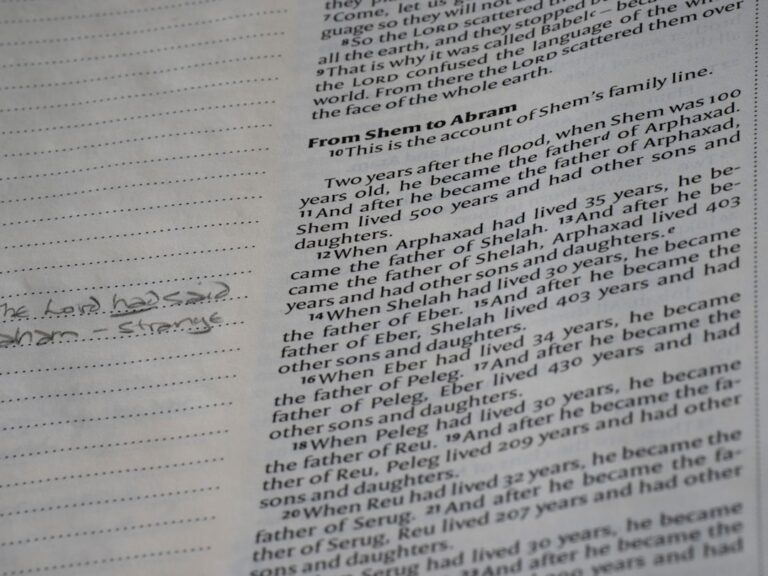 they
7Come, let us g
guage so they will not
8So the LORD scattered th
all the earth, and they stopped bu
9That is why it was called Babelc – beca
the LORD confused the language of the wh
world. From there the LORD scattered them over
the face of the whole earth.
From Shem to Abram
10This is the account of Shem's family line.
Two years after the flood, when Shem was 100
years old, he became the fatherd of Arphaxad.
11And after he became the father of Arphaxad,
Shem lived 500 years and had other sons and
daughters.
12When Arphaxad had lived 35 years, he be-
came the father of Shelah. 13And after he be-
came the father of Shelah, Arphaxad lived 403
years and had other sons and daughters.e
14When Shelah had lived 30 years, he became
the father of Eber. 15And after he became the
father of Eber, Shelah lived 403 years and had
other sons and daughters.
16When Eber had lived 34 years, he became
the father of Peleg. 17And after he became the
father of Peleg, Eber lived 430 years and had
other sons and daughters.
18When Peleg had lived 30 years, he became
the father of Reu. 19And after he became the fa-
ther of Reu, Peleg lived 209 years and had other
sons and daughters.
20When Reu had lived 32 years, he became the
father of Serug. 21And after he became the fa-
ther of Serug, Reu lived 207 years and had other
sons and daughters.
Serug had lived 30 years, he became
And after he became the
years and had
he Lord had said
aham – strange